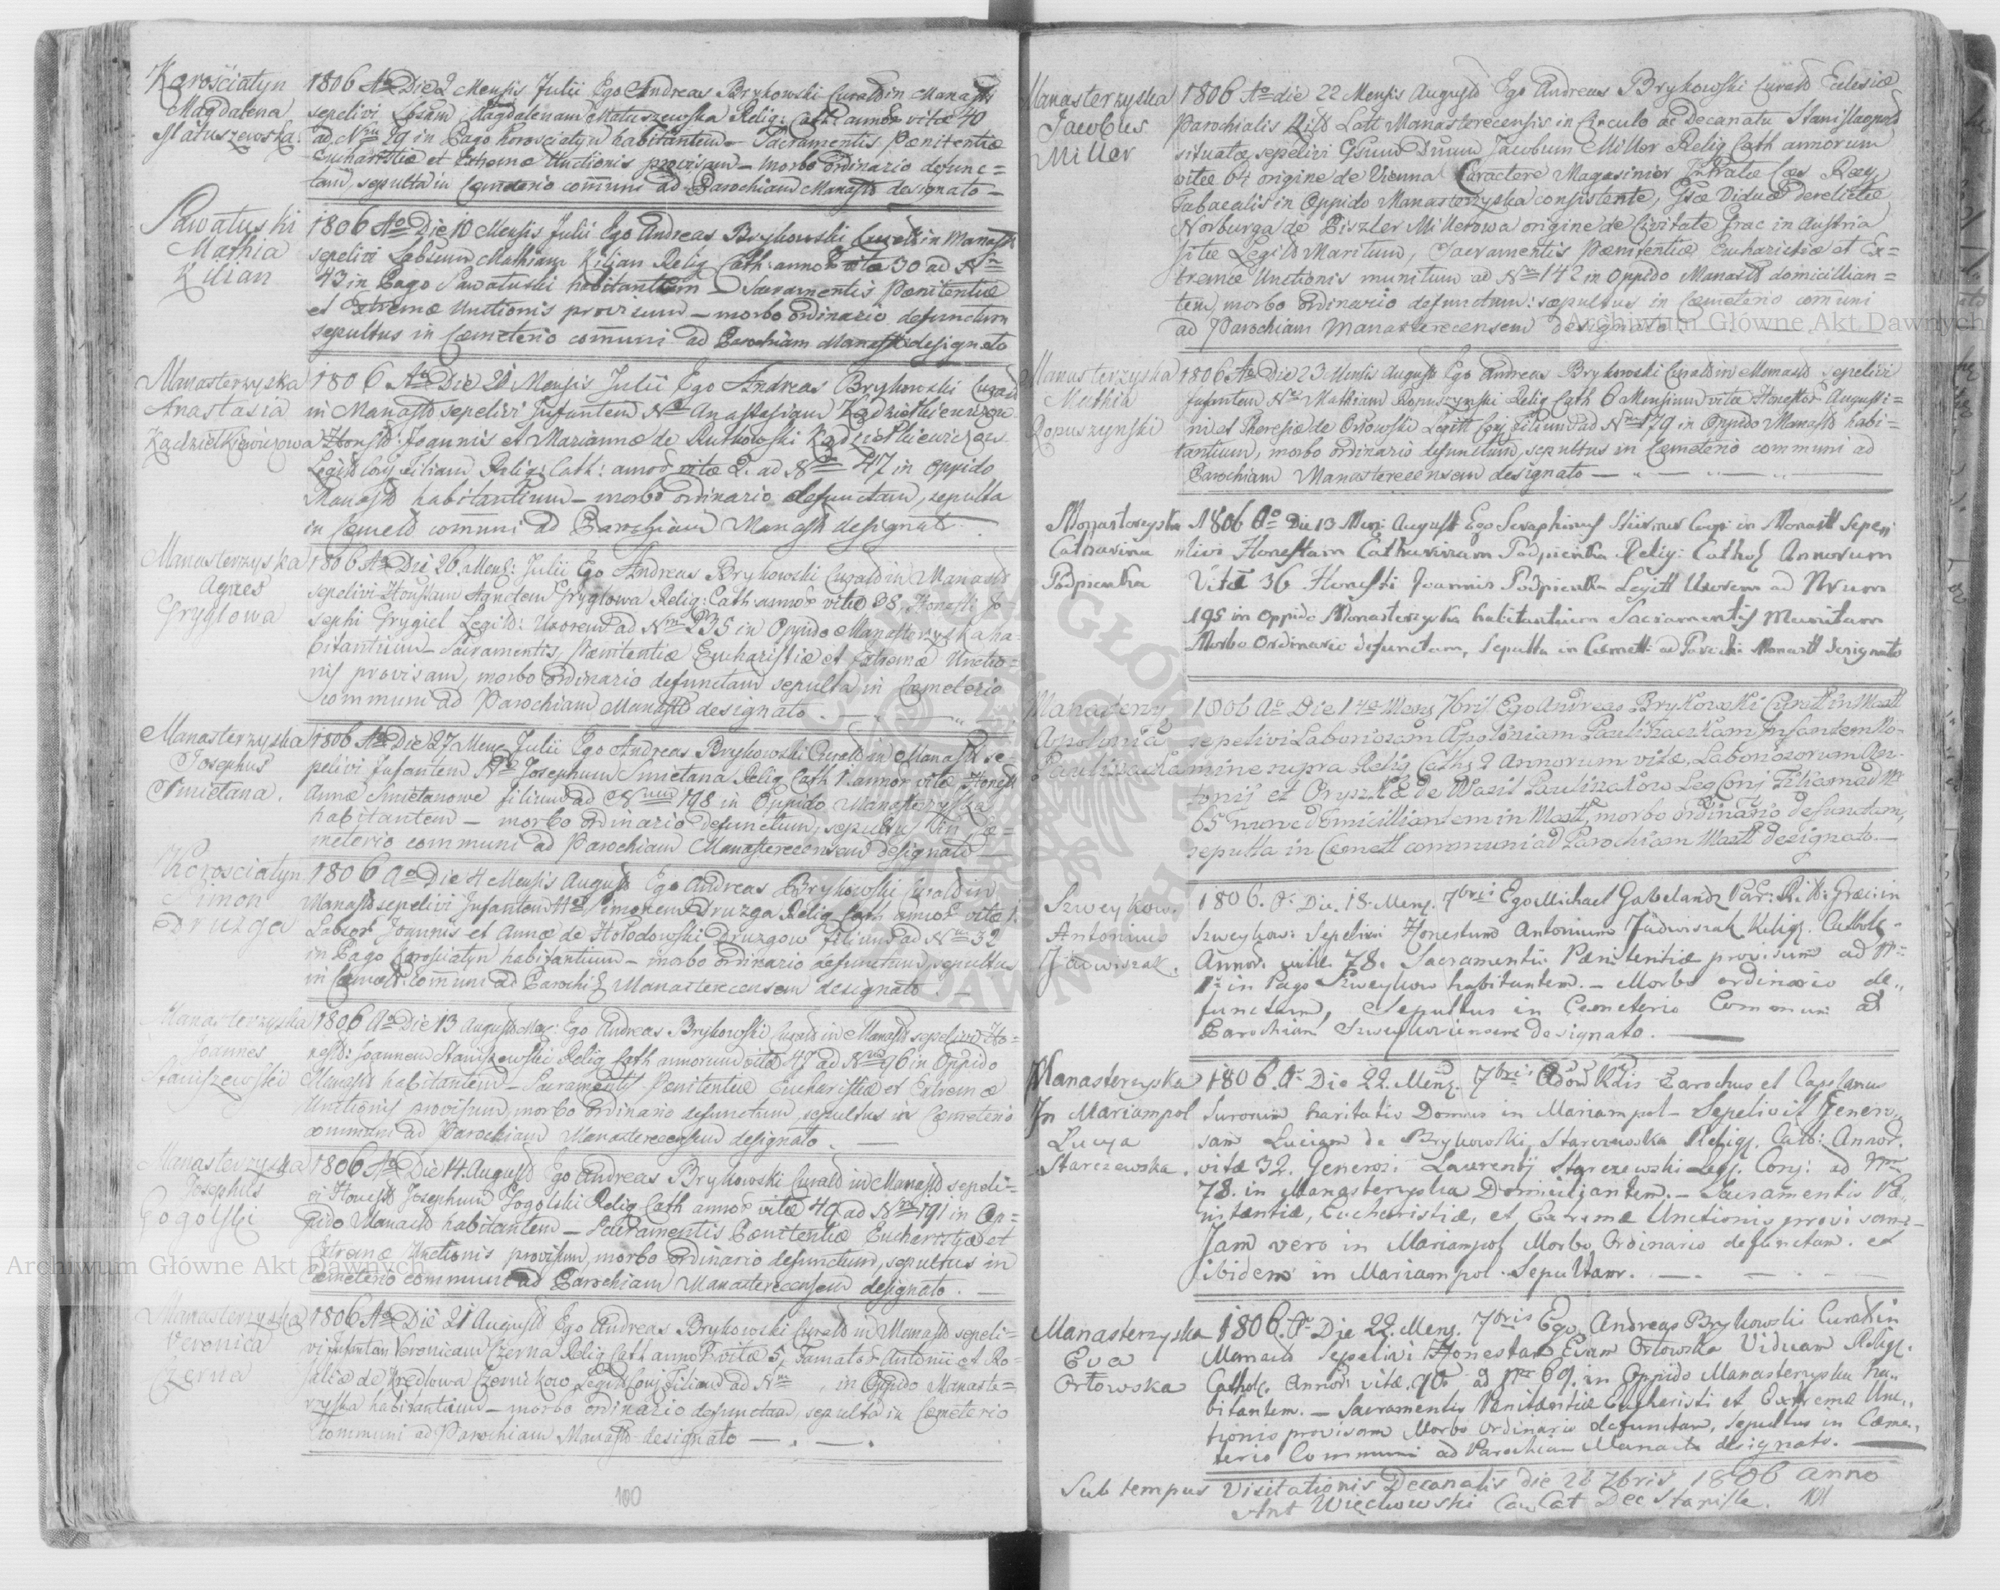 Korościatyn
Magdalena
Matuszewska.
1806 Ao Die 2 Mensis Julii Ego Andreas Brykowski Curat in Manast
sepelivi Magdalenam Matuszewska Relig: Cath: annor vitæ 40
ad Nrm 29 in Pago Korosciatyn habitantem – Sacramentis Pœnitentiæ
Eucharistiæ et Extremæ Unctionis provisam – morbo ordinario defunc=
tam, sepulta in Cæmeterio com̄uni ad Parochiam Manast designato –
Sawatuski
Mathia
Kilian
1806 Ao Die 10 Mensis Julii Ego Andreas Brykowski Curat in Manast
sepelivi Labsum Mathiam Kilian Relig Cath: annor vitæ 30 ad Nrm
43 in Pago Sawatuski habitantem – Sacramentis Pœnitentiæ
et Extremæ Unctionis provisum – morbo ordinario defunctum
sepultus in Cæmeterio com̄uni ad Parochiam Manast designato
Manasterzyska
Anastasia
Kądzielkiewiczowa
1806 Ao Die 21 Mensis Julii Ego Andreas Brykowski Curat
in Manast sepelivi Infantem Ne Anastasiam Kądzielkiewiczow
Honest: Joannis et Mariannæ de Rutkowski Kądzielkiewiczow
Legit Conj Filiam Relig: Cath: annor vitæ 2. ad Nrm 47 in Oppido
Manast habitantium – morbo ordinario defunctam, sepulta
in Cæmet com̄uni ad Parochiam Manast designato.
Manasterzyska
Agnes
Gryglowa
1806 Ao Die 26 Mens: Julii Ego Andreas Brykowski Curat in Manast
sepelivi Honestam Agnetem Gryglowa Relig: Cath annor vitæ 38, Honesti Jo=
sephi Grygiel Legit: Uxorem ad Nrm 235 in Oppido Manasterzyska ha=
bitantium – Sacramentis, Pœnitentiæ Eucharistiæ et Extremæ Unctio=
nis provisam, morbo ordinario defunctam sepulta in Cæmeterio
communi ad Parochiam Manast designato.
Manasterzyska
Josephus
Smietana.
1806 Ao Die 27 Mens Julii Ego Andreas Brykowski Curat in Manast se=
pelivi Infantem Ne Josephum Smietana Relig Cath 1. annor vitæ Honest
Annæ Smietanowe filium ad Nrum 198 in Oppido Manasterzyska
habitantem – morbo ordinario defunctum, sepultus in Cæ=
meterio communi ad Parochiam Manasterecensem designato
Korosciatyn
Simon
Druzga
1806 Ao Die 4 Mensis August Ego Andreas Brykowski Curat in
Manast sepelivi Infantem Ne Simonem Druzga Relig Cath annor vitæ 1.
Labsor Joannis et Annæ de Hołodowski Druzgow filium ad Nrm 32
in Pago Korosciatyn habitantium – morbo ordinario defunctum, sepultus
in Cæmet: com̄uni ad Parochi Manasterecensem designato.
Manasterzyska
Joannes
Staniszewski
1806 Ao Die 13 August Mens: Ego Andreas Brykowski Curat in Manast sepelivi Ho=
nest: Joannem Staniszewski Relig Cath annorum vitæ 47 ad Nrm 96 in Oppido
Manast habitantem – Sacramentis Pœnitentiæ Eucharistiæ et Extremæ
Unctionis provisum, morbo ordinario defunctum, sepultus in Cæmeterio
communi ad Parochiam Manasterecensem designato.
Manasterzyska
Josephus
Gogolski
1806 Ao Die 14 August Ego Andreas Brykowski Curat in Manast sepeli=
vi Honest Josephum Gogolski Relig Cath annor vitæ 49 ad Nrm 191 in Op=
pido Manast habitantem – Sacramentis Pœnitentiæ Eucharistiæ et
Extremæ Unctionis provisum, morbo ordinario defunctum, sepultus in
Cæmeterio communi ad Parochiam Manasterecensem designato.
Manasterzyska
Veronica
Czerna
1806 Ao Die 21 August Ego Andreas Brykowski Curat in Manast sepeli=
vi Infantem Veronicam Czerna Relig Cath annor vitæ 5, Famator Antonii et Ro=
saliæ de Kredlowa Czernikow Legit Conj filiam ad Nrm , in Oppido Manaste=
rzyska habitantium – morbo ordinario defunctam, sepulta in Cemeterio
Communi ad Parochiam Manast designato –
100
Manasterzyska
Jacobus
Miller
1806 Ao die 22 Mensis August Ego Andreas Brykowski Curat Eclesiæ
Parochialis Rit Latt Manasterecensis in Circulo ac Decanatu Stanislaopol
situatæ, sepelivi Gsum Dnum Jacobum Miller Relig Cath annorum
vitæ 64 origine de Vienna Caractere Magasinier Intratæ Cæs Reg
Tabacalis in Oppido Manasterzyska consistente, Gsæ Viduæ derelictæ
Norburga de Piszler Millerowa origine de Civitate Grac in Austria
sitæ Legit Maritum, Sacramentis Pœnitentiæ Eucharistiæ et Ex=
tremæ Unctionis munitum ad Nrm 142 in Oppido Manast domicillian=
tem, morbo ordinario defunctum: sepultus in Cæmeterio com̄uni
ad Parochiam Manasterecensem designato.
Manasterzyska
Mathia
Ropuszynski
1806 Ao Die 23 Mensis August Ego Andreas Brykowski Curat in Manast sepelivi
Infantem Ne Mathiam Ropuszynski Relig Cath 6 Mensium vitæ Honestor Augusti=
ni et Theresiæ de Orłowski Legitt Conj Filium ad Nrm 179 in Oppido Manast habi=
tantium, morbo ordinario defunctum, sepultus in Cæmeterio communi ad
Parochiam Manasterecensem designato –
Monasterzyska
Catharina
Podpienka
1806 Ao Die 13 Mens: August Ego Seraphinus in Monast Sepe=
livi Honestam Catharinam Podpienka Relig: Cathol Annorum
Vitæ 36 Honesti Joannis Podpienka Legitt Uxorem ad Nrum
195 in Oppido Monasterzyska habitantium Sacramentis Munitam
Morbo Ordinario defunctam, Sepulta in Cæmett: ad Paroch: Monast designato
Manasterzy
Apolonia
Pauliszacka
1806 Ao Die 17 Mens 7bris Ego Andreas Brykowski Curatt in Mastt
sepelivi Laboriosam Apoloniam Pauliszackam Infantem No=
mine supra Relig Cath: 2 Annorum vitæ, Laboriosorum An=
tonij et Oryszkæ de Wasil Pauliszakow Leg Conj Filiam ad Nr
65 nunc domicilliantem in Mastt, morbo ordinario defunctam,
sepulta in Cæmett communi ad Parochiam Mastt designato. –
Szweykow.
Antonius
Jadwiszak.
1806. Ao Die. 18. Mens. 7bris Ego Michael Par: Rit: Græci in
Szweykow: Sepelivi Honestum Antonium Jadwiszak Religs. Cathol:
Annor. vitæ. 78. Sacramentis Pænitentiæ provisum ad N=
1o in Pago Szweykow habitantem. – Morbo ordinario de=
functum, Sepultus in Cemeterio Communi ad
Parochiam Szweykoviensem designato.
Manasterzyska
In Mariampol
Lucya
Starczewska.
1806. Ao Die 22. Mens. 7bris Parochus et Capelanus
Sororum haritatis Domus in Mariampol – Sepelivit Genero=
sam Luciam de Brykowski, Starczewska Religs. Cath: Annor.
vitæ 32. Generosi Laurentij Starczewski Leg. Conj: ad Nrm
78. in Manasterzyska Domiciljantem. – Sacramentis Pæ=
nitentiæ, Eucharistiæ, et Extremæ Unctionis provisam. –
Jam vero in Mariampol Morbo Ordinario defunctam. et
ibidem in Mariampol. Sepultam.
Manasterzyska
Eva
Orłowska
1806. Ao Die 22. Mens. 7bris Ego Andreas Brykowski Curat in
Manast Sepelivi Honestam Evam Orłowska Viduam Religs.
Catholc. Annor: vitæ. 90. ad Nrm 69. in Oppido Manasterzyska ha=
bitantem. – Sacramentis Pænitentiæ Eucharisti et Extremæ Unc=
tionis provisam Morbo Ordinario defunctam, Sepultus in Cæme=
terio Communi ad Parochiam Manast designato.
Sub tempus Visitationis Decanalis die 26 7bris 1806 anno
Ant Wiechowski Can Cat Dec Stanisla.
101
Archiwum Główne Akt Dawnych
Archiwum Główne Akt Dawnych